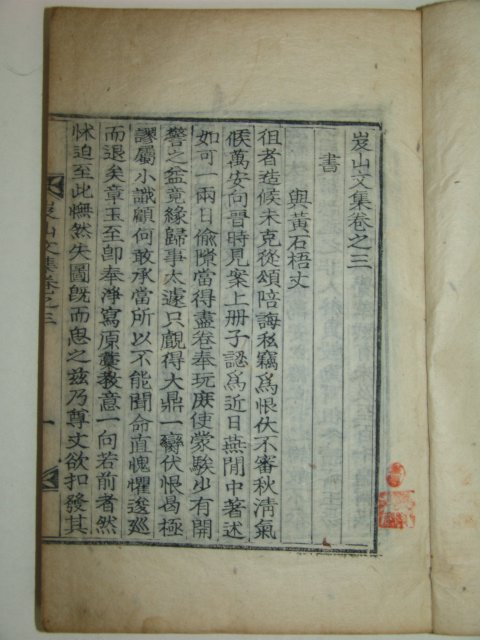 岌山文集卷之三
書
與黃石梧丈
徂者造候未克從頌陪誨私竊爲恨伏不審秋淸氣
候萬安向晉時見案上册子認爲近日燕閒中著述
如可一兩日偸隙當得盡卷奉玩庶使蒙騃少有開
警之益竟緣歸事太遽只覷得大鼎一臠伏恨曷極
謬屬小識顧何敢承當所以不能聞命直愧懼逡巡
而退矣章玉至卽奉淨寫原藁敎意一向若前者然
怵迫至此憮然失圖旣而思之玆乃尊丈欲扣發其
岌山文集卷之三
一